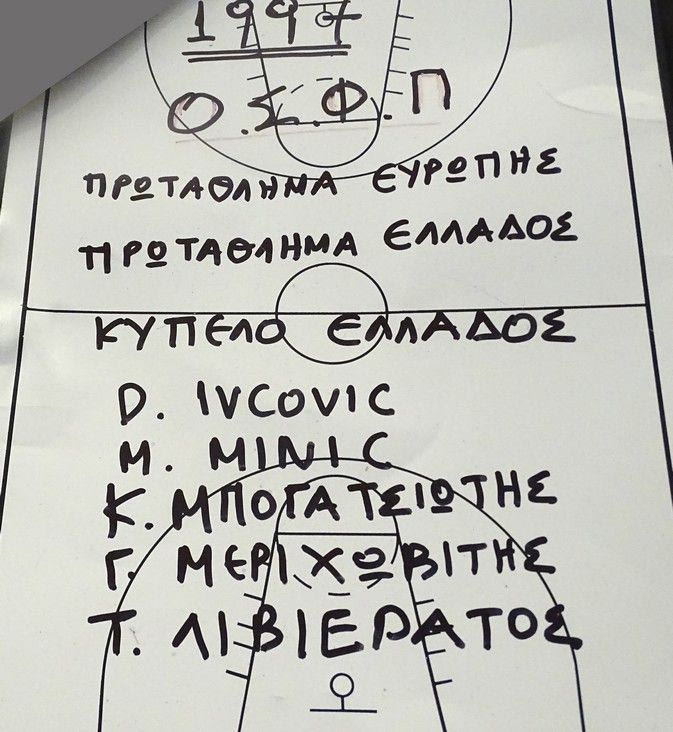 1997
Ο.Σ.Φ.Π
ΠΡΩΤΑΘΛΗΜΑ ΕΥΡΩΠΗΣ
ΠΡΩΤΑΘΛΗΜΑ ΕΛΛΑΔΟΣ
ΚΥΠΕΛΟ ΕΛΛΑΔΟΣ
D. IVCOVIC
M. MINIC
Κ. ΜΠΟΓΑΤΣΙΩΤΗΣ
Γ. ΜΕΡΙΧΩΒΙΤΗΣ
Τ. ΛΙΒΙΕΡΑΤΟΣ